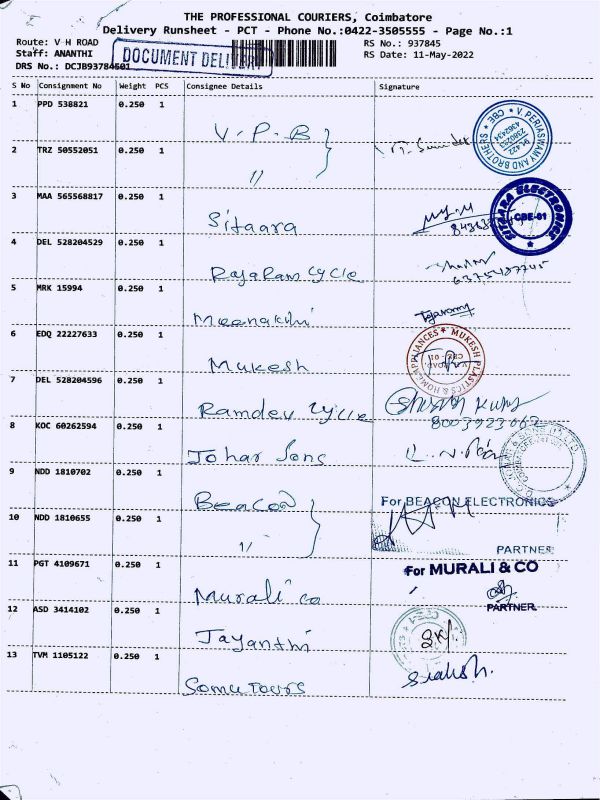 THE PROFESSIONAL COURIERS, Coimbatore
Delivery Runsheet - PCT - Phone No.:0422-3505555 - Page No.:1
Route: V H ROAD
RS No.: 937845
Staff: ANANTHI
RS Date: 11-May-2022
DOCUMENT DELIVERY
DRS No.: DCJB93784501
S No Consignment No Weight PCS Consignee Details Signature
1 PPD 538821 0.250 1 V.P.B
2 TRZ 50552051 0.250 1 "
V. PERIASWAMY AND BROTHERS CBE
3 MAA 565568817 0.250 1 Sitaara
SITAARA ELECTRONICS CBE-01
4 DEL 528204529 0.250 1 RajaRam cycle
5 MRK 15994 0.250 1 Meenakshi
6 EDQ 22227633 0.250 1 Mukesh
MUKESH PLASTICS & HOME APPLIANCES
7 DEL 528204596 0.250 1 Ramdev cycle
8003923062
8 KOC 60262594 0.250 1 Johar Sons
9 NDD 1810702 0.250 1 Beacon
For BEACON ELECTRONICS
10 NDD 1810655 0.250 1 "
PARTNER
11 PGT 4109671 0.250 1 Murali co
For MURALI & CO
PARTNER
12 ASD 3414102 0.250 1 Jayanthi
13 TVM 1105122 0.250 1 Somu Tours